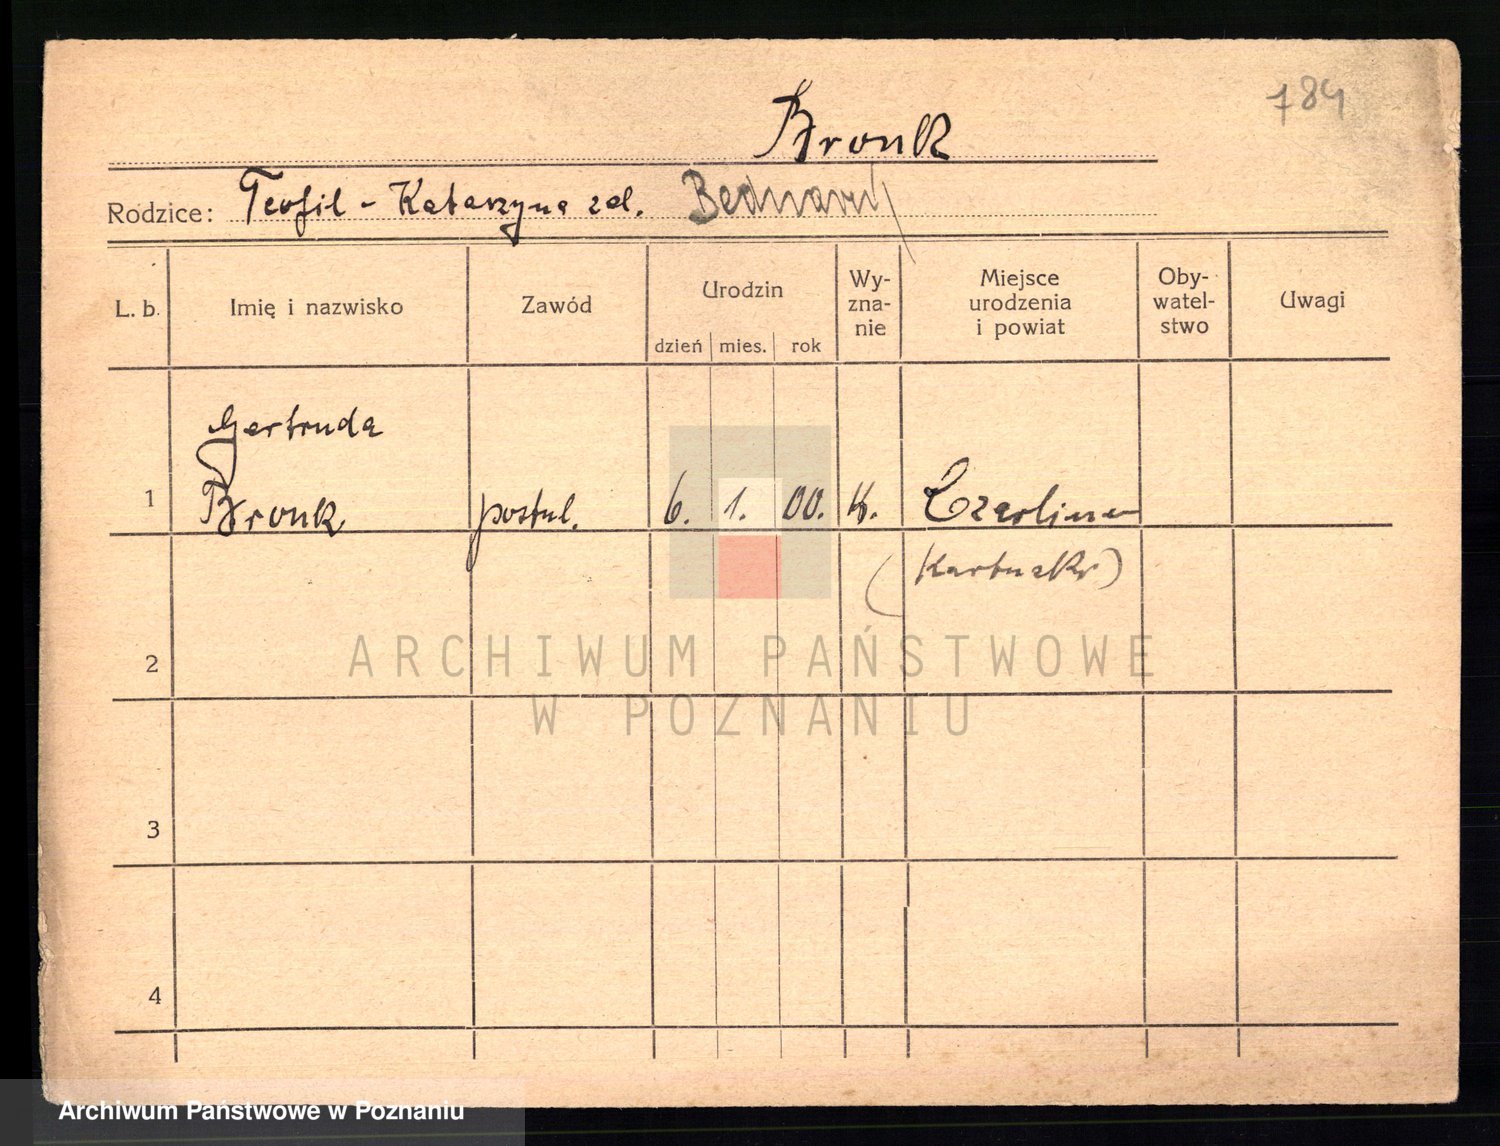 784
Bronk
Rodzice: Teofil - Katarzyna zd.
L. b. Imię i nazwisko Zawód Urodzin dzień mies. rok Wyznanie Miejsce urodzenia i powiat Obywatelstwo Uwagi
Gertruda
1 Bronk postul. 6. 1. 00. K.
2
3
4
ARCHIWUM PAŃSTWOWE
W POZNANIU
Archiwum Państwowe w Poznaniu